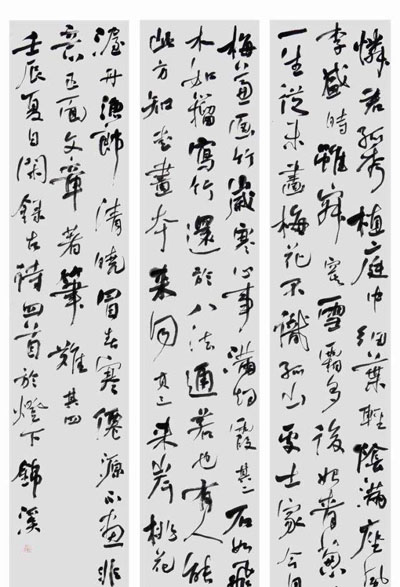 憐君孤秀植庭中細葉輕陰滿座風
李盛時雖寂寞雪霜多後始青蔥
一生從未畫梅花不識孤山處士家今日
梅兼畫竹歲寒心事滿烟霞其二石如飛
木如籀寫竹還於八法通若也有人能
此方知書畫本來同其三夾岸桃花
舟漁郎清曉冒春寒僊源正畫非
意面文章著筆難其四
壬辰夏日閑錄古詩四首於燈下錦溪